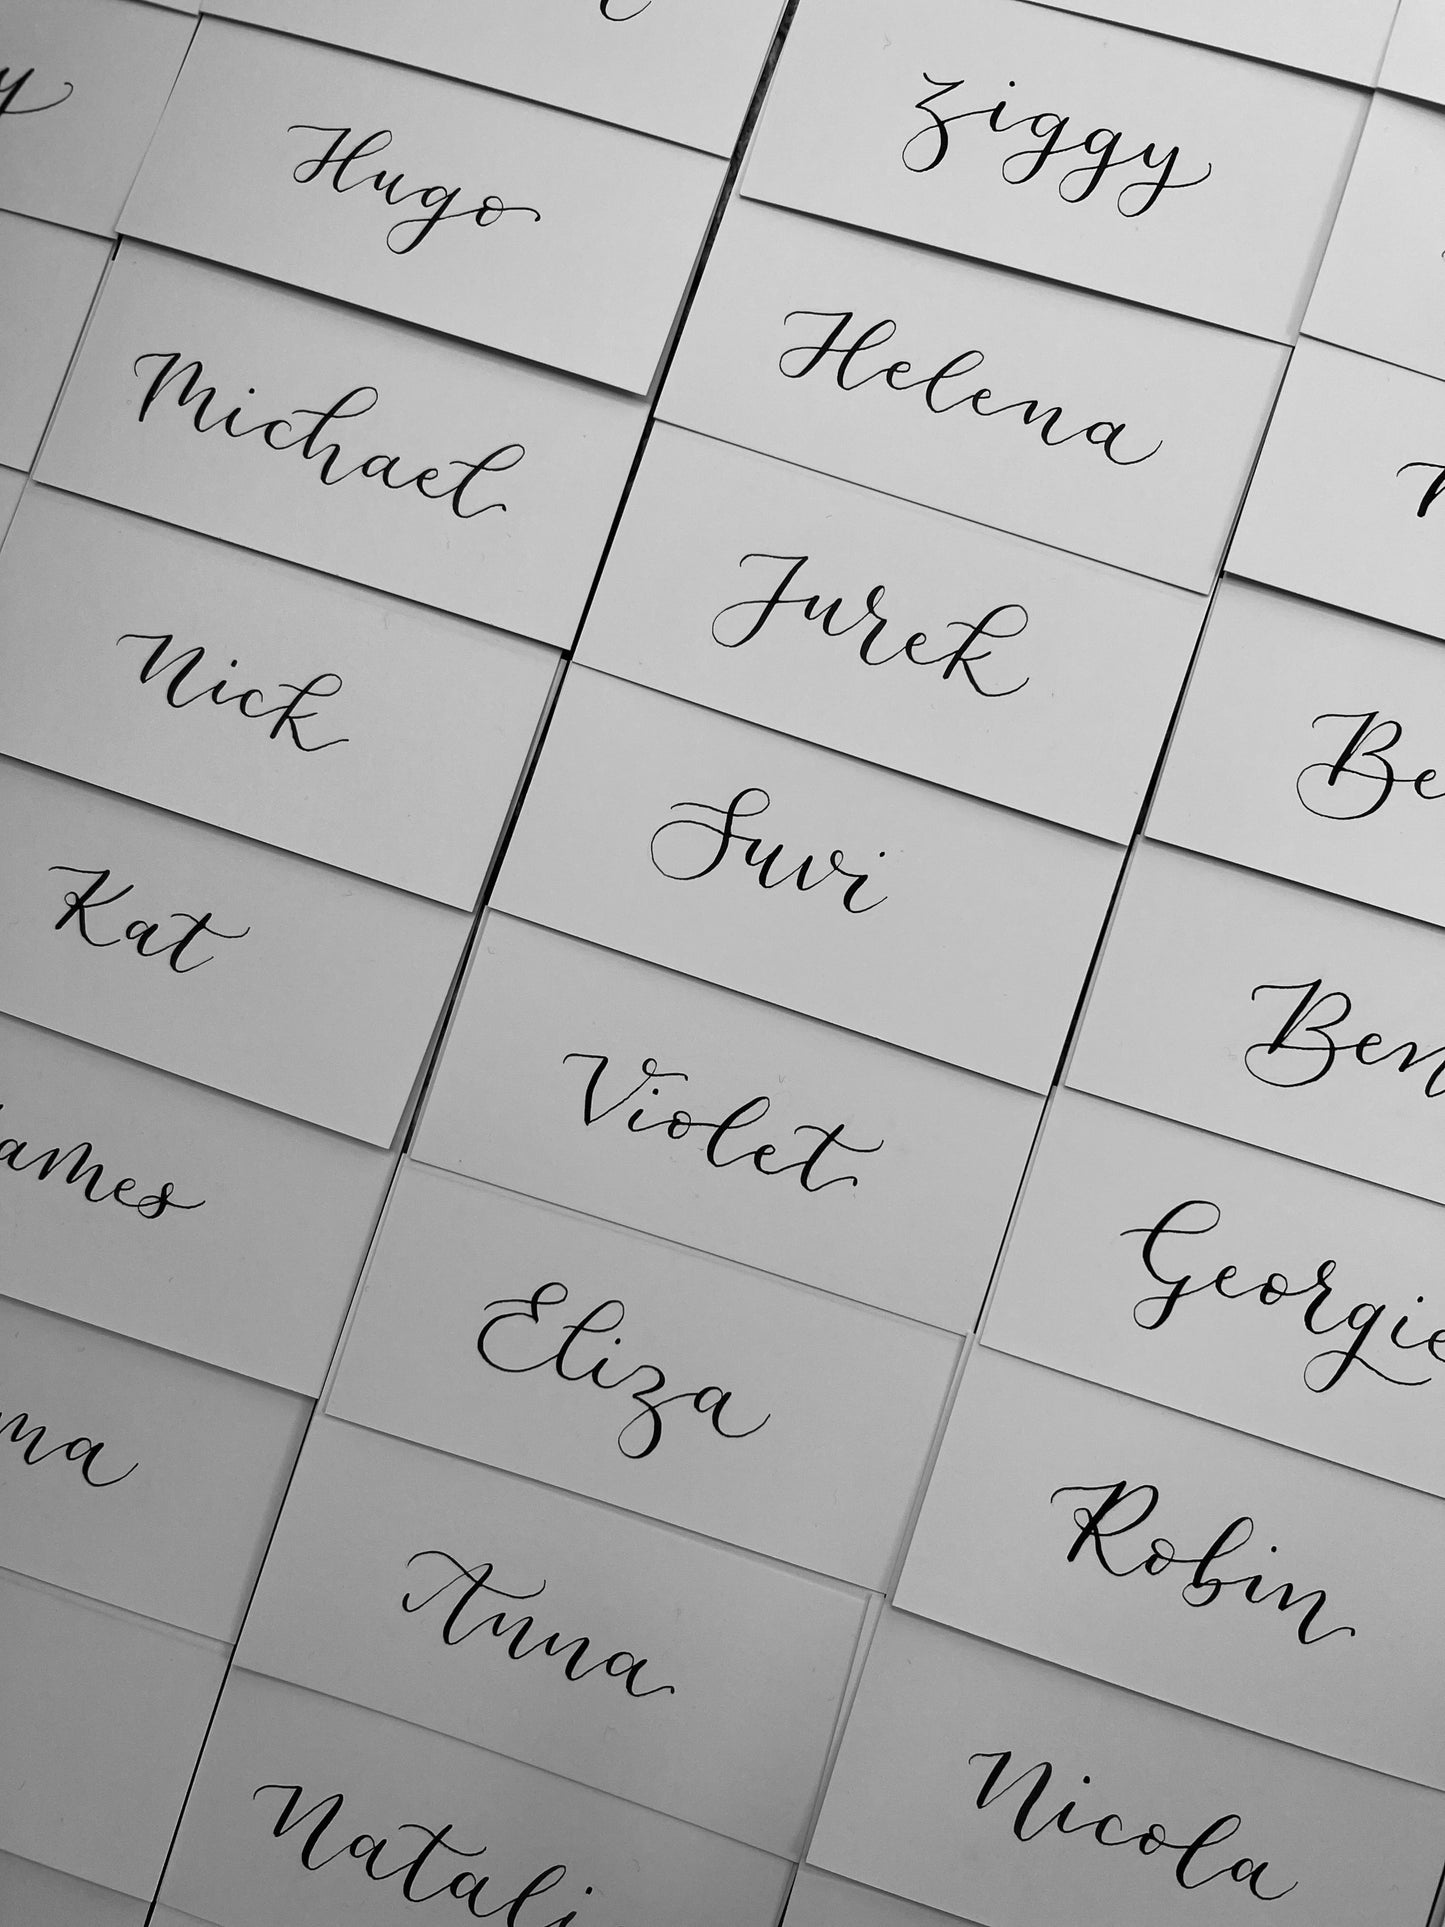 Hugo
Michael
Nick
Kat
ames
ma
Ziggy
Helena
Jurek
Suvi
Violet
Eliza
Anna
Natali
Be
Ben
Georgie
Robin
Nicola